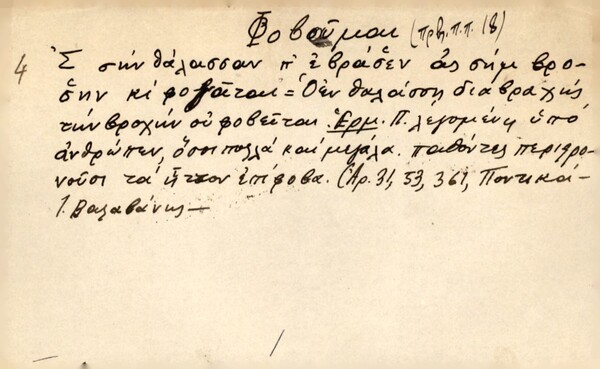 Φοβοῦμαι (πρβ. π.π. 18)
4 Σ σὴν θάλασσαν π' ἐβράσεν ἀς σὴμ βρο-
σὴν κὶ φοβᾶται = Ὁ ἐν θαλάσσῃ διαβραχεὶς
τὴν βροχὴν οὐ φοβεῖται. Ἑρμ. Π. λεγομένη ὑπὸ
ἀνθρώπων, ὅσοι πολλὰ καὶ μεγάλα παθόντες περιφρο-
νοῦσι τὰ ἧττον ἐπίφοβα. (Ἀρ. 31, 53, 361, Ποντικά -
Ι. Βαλαβάνης —